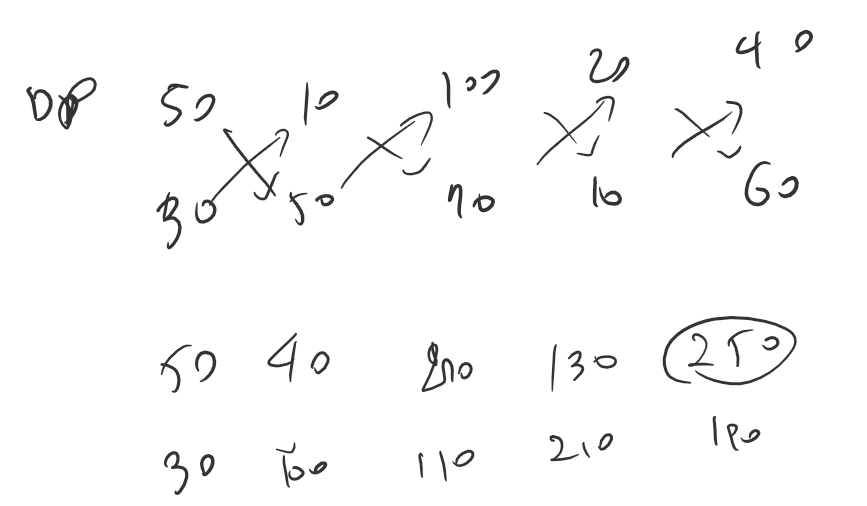 DP 50 10 100 20 40
30 50 70 10 60
50 40 200 130 250
30 100 110 210 190